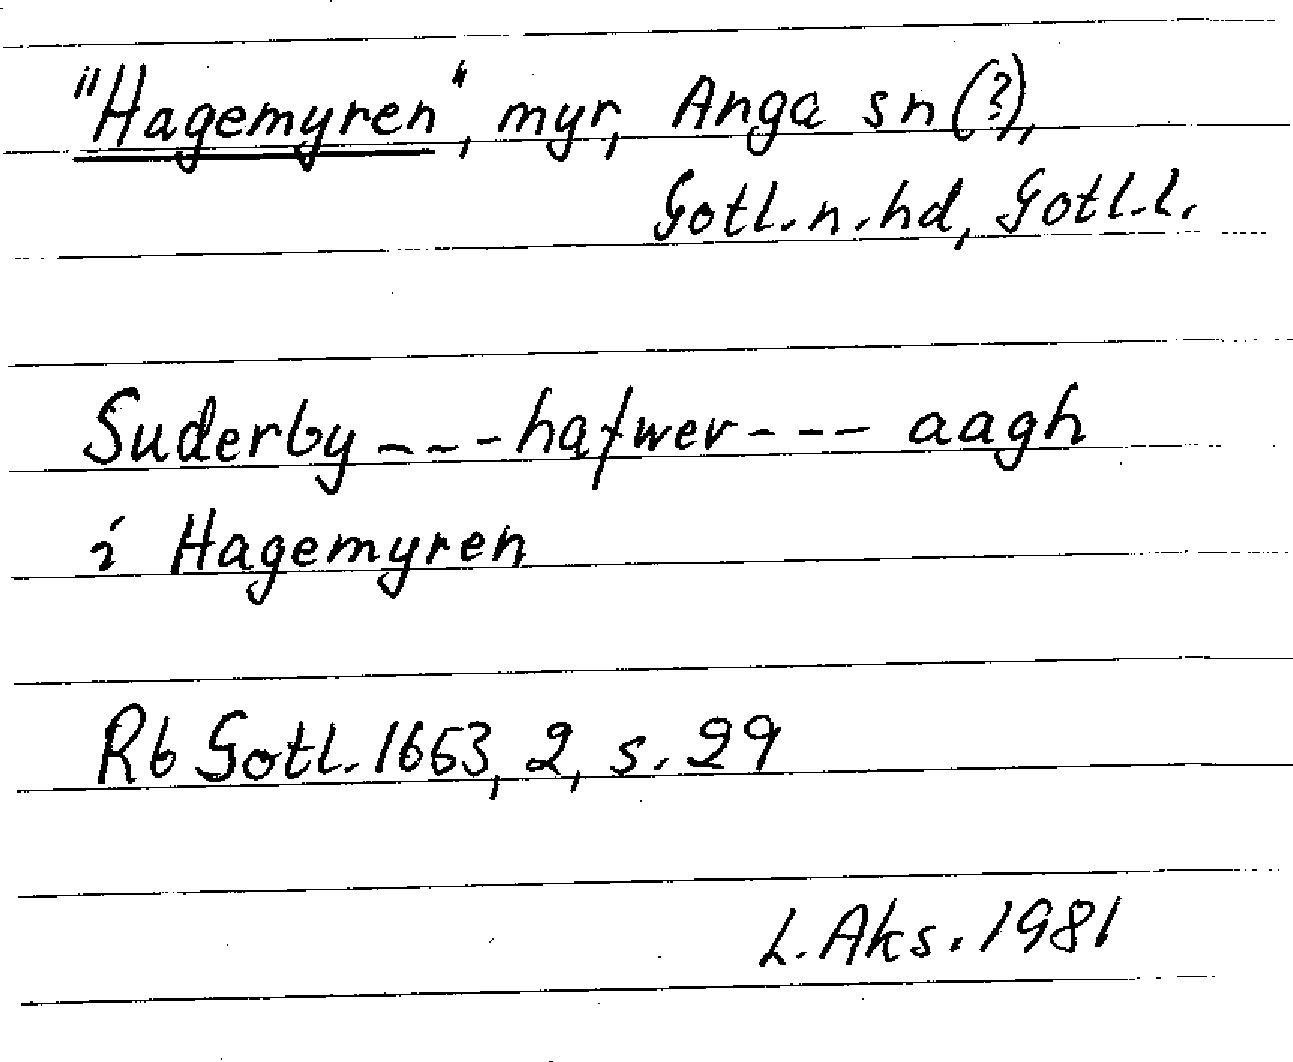 "Hagemyren", myr, Anga sn (?),
Gotl. n. hd, Gotl. l.
Suderby --- hafwer --- aagh
i Hagemyren
Rb Gotl. 1653, 2, s. 29
L. Aks. 1981